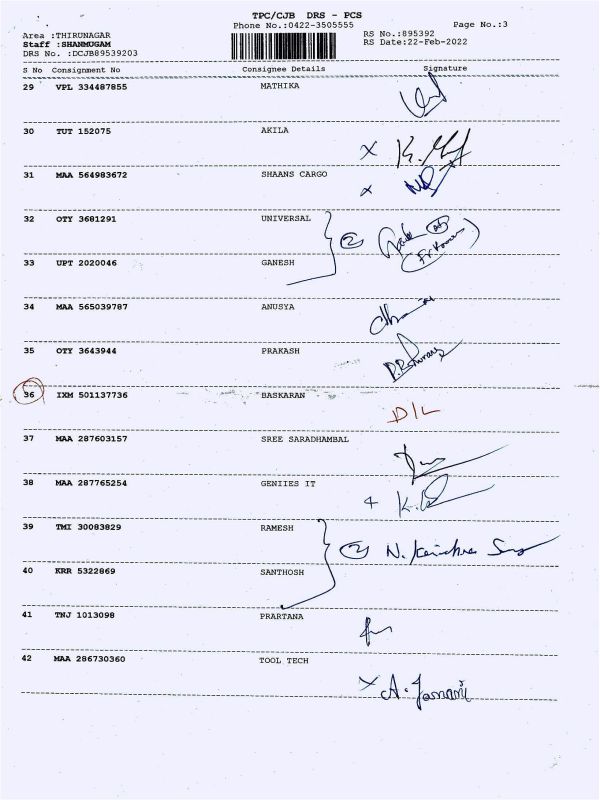 TPC/CJB DRS - PCS
Phone No.:0422-3505555
Page No.:3
Area :THIRUNAGAR
Staff :SHANMUGAM
DRS No. :DCJB89539203
RS No.:895392
RS Date:22-Feb-2022
S No Consignment No Consignee Details Signature
29 VPL 334487855 MATHIKA
30 TUT 152075 AKILA
31 MAA 564983672 SHAANS CARGO
32 OTY 3681291 UNIVERSAL
33 UPT 2020046 GANESH
34 MAA 565039787 ANUSYA
35 OTY 3643944 PRAKASH
36 IXM 501137736 BASKARAN
D/L
37 MAA 287603157 SREE SARADHAMBAL
38 MAA 287765254 GENIIES IT
39 TMI 30083829 RAMESH
40 KRR 5322869 SANTHOSH
41 TNJ 1013098 PRARTANA
42 MAA 286730360 TOOL TECH
A. Janani